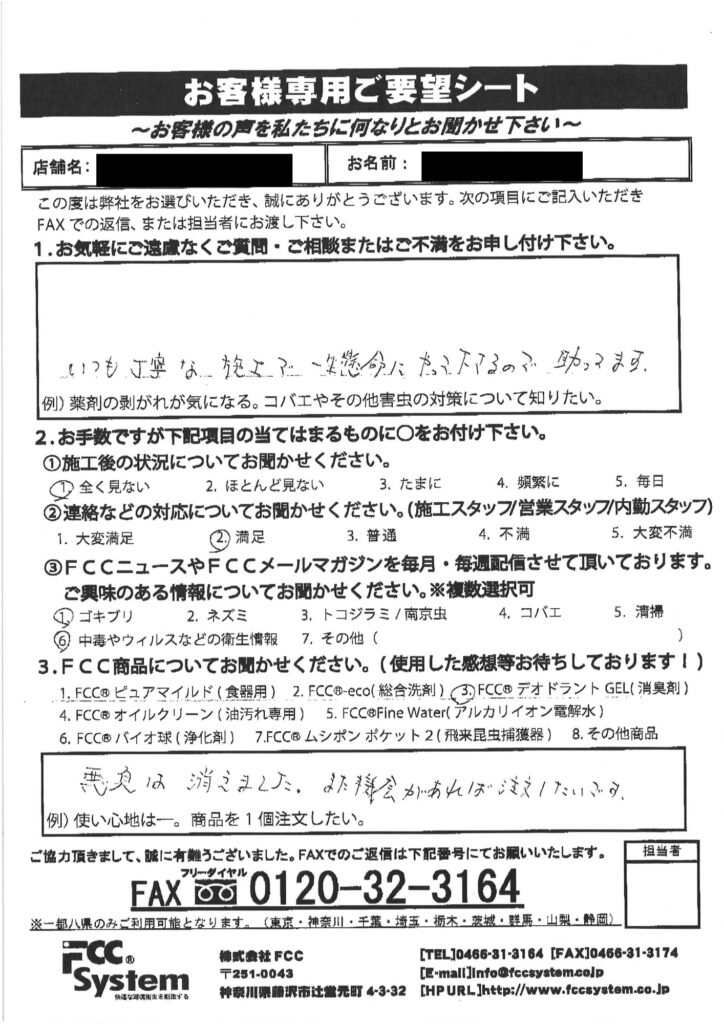 お客様専用ご要望シート
～お客様の声を私たちに何なりとお聞かせ下さい～
店舗名： お名前：
この度は弊社をお選びいただき、誠にありがとうございます。次の項目にご記入いただき
FAXでの返信、または担当者にお渡し下さい。
1.お気軽にご遠慮なくご質問・ご相談またはご不満をお申し付け下さい。
いつも丁寧な施工で一生懸命にやって下さるので助ってます。
例）薬剤の剥がれが気になる。コバエやその他害虫の対策について知りたい。
2.お手数ですが下記項目の当てはまるものに〇をお付け下さい。
①施工後の状況についてお聞かせください。
1. 全く見ない 2. ほとんど見ない 3. たまに 4. 頻繁に 5. 毎日
②連絡などの対応についてお聞かせください。(施工スタッフ/営業スタッフ/内勤スタッフ)
1. 大変満足 2. 満足 3. 普通 4. 不満 5. 大変不満
③FCCニュースやFCCメールマガジンを毎月・毎週配信させて頂いております。
ご興味のある情報についてお聞かせください。※複数選択可
1. ゴキブリ 2. ネズミ 3. トコジラミ/南京虫 4. コバエ 5. 清掃
6 中毒やウィルスなどの衛生情報 7. その他（ ）
3.FCC商品についてお聞かせください。(使用した感想等お待ちしております！)
1. FCC® ピュアマイルド(食器用) 2. FCC®-eco(総合洗剤) 3. FCC® デオドラント GEL(消臭剤)
4. FCC® オイルクリーン(油汚れ専用) 5. FCC®Fine Water(アルカリイオン電解水)
6. FCC® バイオ球(浄化剤) 7.FCC® ムシポン ポケット2(飛来昆虫捕獲器) 8. その他商品
悪臭は消えました。また機会があれば注文したいです。
例）使い心地は―。商品を1個注文したい。
ご協力頂きまして、誠に有難うございました。FAXでのご返信は下記番号にてお願いいたします。
担当者
フリーダイヤル
FAX 0120-32-3164
※一都八県のみご利用可能となります。（東京・神奈川・千葉・埼玉・栃木・茨城・群馬・山梨・静岡）
FCC® System
快適な環境衛生を創造する
株式会社FCC
〒251-0043
神奈川県藤沢市辻堂元町4-3-32
[TEL]0466-31-3164 [FAX]0466-31-3174
[E-mail]info@fccsystem.co.jp
[HP URL]http://www.fccsystem.co.jp